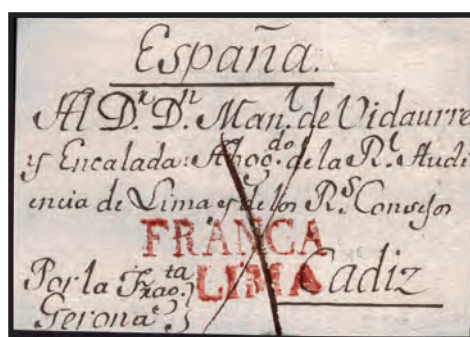 España.
Al D.ⁿ D.ⁿ Man.ˡ de Vidaurre
y Encalada: Abog.ᵈᵒ de la R.ˡ Audi
encia de Lima y de los R.ˢ Consejos
FRANCA
LIMA
Cadiz
Por la Frag.ᵗᵃ
Gerona